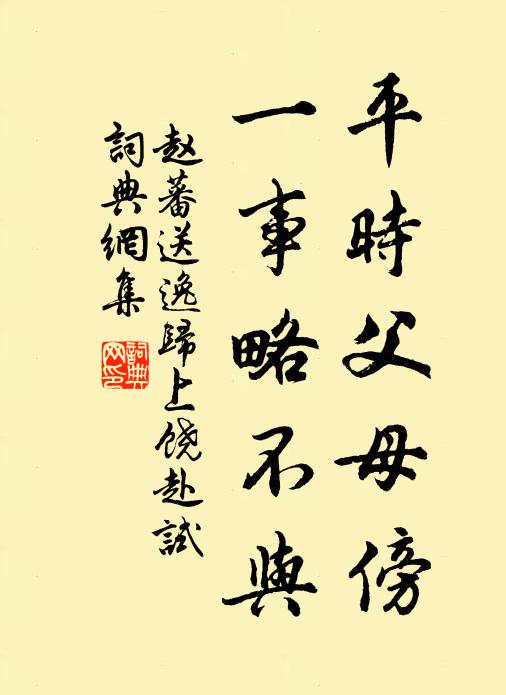 平時父母傍
一事略不與
赵蕃送逸歸上饶赴試
詞典網集
詞典
网印